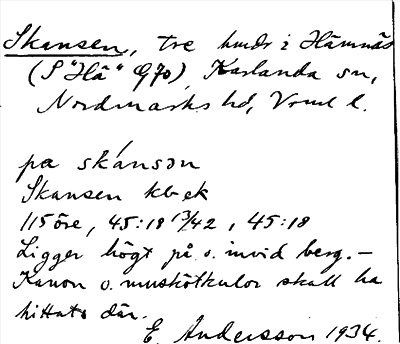 Skansen, tre hmdr i Hämnäs
(S "Hä" G70), Karlanda sn,
Nordmarks hd, Vrml l.
pa skánsən
Skansen kb ek
115 öre, 45:18 13/42, 45:18
Ligger högt på o. invid berg. –
Kanon o. muskötkulor skall ha
hittats där.
E. Andersson 1934.